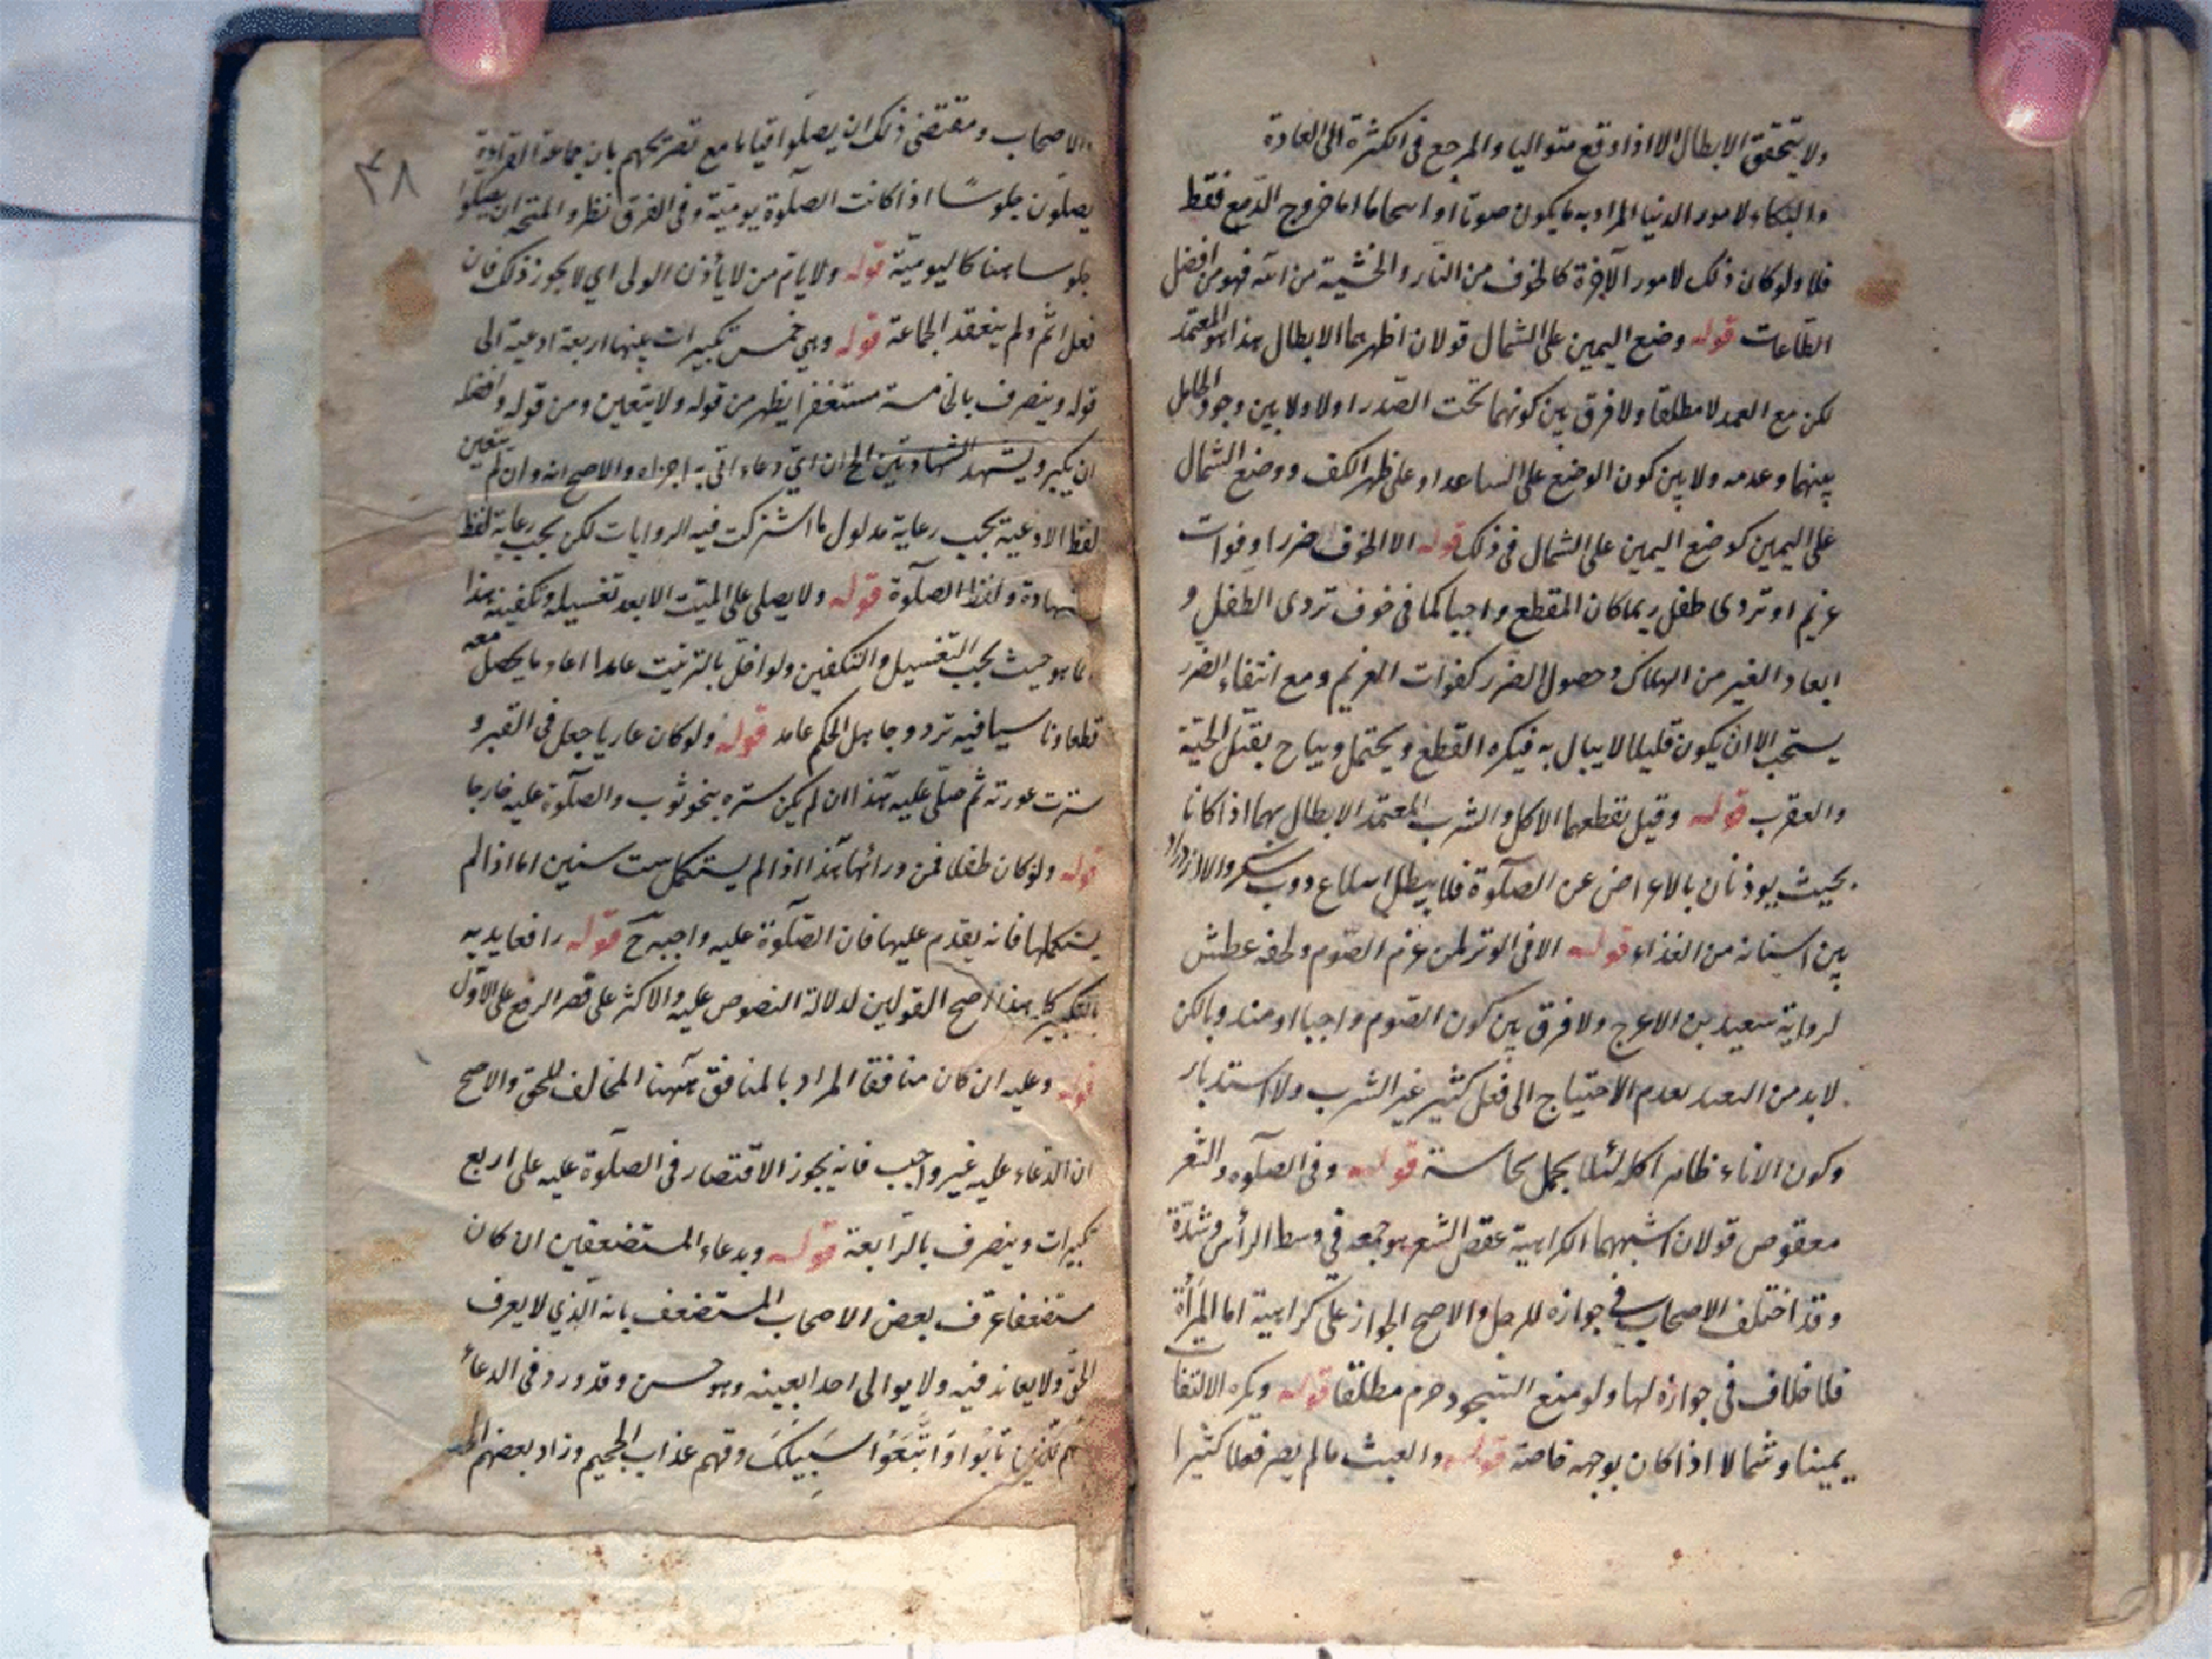 ولا يتحقق الابطال الا اذا وقع متواليا والمرجع فى الكثرة الى العادة
والبكاء لامور الدنيا المراد به ما يكون صوتا او اسحاما اما خروج الدمع فقط
فلا ولو كان ذلك لامور الآخرة كالخوف من النار والخشية من الله فهو من افضل
الطاعات قوله وضع اليمين على الشمال قولان اظهرهما الابطال هذا هو المعتمد
لكن مع العمد لا مطلقا ولا فرق بين كونهما تحت الصدر اولا ولا بين وجود الحايل
بينهما وعدمه ولا بين كون الوضع على الساعد او على ظهر الكف ووضع الشمال
على اليمين كوضع اليمين على الشمال فى ذلك قوله الا الخوف ضرر او فوات
غريم او تردى طفل ربما كان المقطع واجبا كما فى خوف تردى الطفل و
ابعاد الغير من الهلاك وحصول الضرر كفوات الغريم ومع انتفاء الضرر
يستحب الا ان يكون قليلا لا يبال به فيكره القطع ويحتمل ويباح بقتل الحية
والعقرب قوله وقيل يقطعهما الاكل والشرب المعتمد الابطال بهما اذا كانا
بحيث يوذنان بالاعراض عن الصلوة فلا يبطل ابتلاع ذوب سكر والازدراد
بين اسنانه من الغذاء قوله الا فى الوتر لمن عزم الصوم ولحقه عطش
لرواية سعيد بن الاعرج ولا فرق بين كون الصوم واجبا او مندوبا لكن
لا بد من التعبد بعدم الاحتياج الى فعل كثير غير الشرب ولا استدبار
وكون الاناء طاهرا كله لئلا يحمل نجاسة قوله وفى الصلوة والشعر
معقوص قولان اشبههما الكراهية عقص الشعر هو جمعه فى وسط الرأس وشدّه
وقد اختلف الاصحاب فى جوازه للرجل والاصح الجواز على كراهية اما المرأة
فلا خلاف فى جوازه لها ولو منع السجود حرم مطلقا قوله ويكره الالتفات
يمينا وشمالا اذا كان بوجهه خاصة قوله والعبث ما لم يصر فعلا كثيرا
٤٨
والاصحاب ومقتضى ذلك ان يصلوا قياما مع تصريحهم بان جماعة العراة
يصلون جلوسا اذا كانت الصلوة يومية وفى الفرق نظر والمتجه ان يصلوا
جلوسا هنا كاليومية قوله ولا ياتم من لا يأذن الولى اى لا يجوز ذلك فان
فعل اثم ولم ينعقد الجماعة قوله وهى خمس تكبيرات بينها اربعة ادعية الى
قوله وينصرف بالخامسة مستغفرا يظهر من قوله ولا يتعين ومن قوله وافضله
ان يكبر ويتشهد الشهادتين الخ ان اى دعاء اتى به اجزاه والاصح انه وان لم يتعين
لفظ الادعية يجب رعاية مدلول ما اشتركت فيه الروايات لكن يجب رعاية لفظ
الشهادة ولفظ الصلوة قوله ولا يصلى على الميت الا بعد تغسيله وتكفينه هذا
انما هو حيث يجب التغسيل والتكفين ولو اخل بالترتيب عامدا اعاد ما يحصل معه
قطعا وناسيا فيه تردد وجاهل الحكم عامد قوله ولو كان عاريا جعل فى القبر و
سترت عورته ثم صلى عليه هذا ان لم يكن ستره بنحو ثوب والصلوة عليه خارجا
قوله ولو كان طفلا فمن ورائها هذا اذا لم يستكمل ست سنين اما اذا لم
يستكملها فانه يقدم عليها فان الصلوة عليه واجبة ح قوله رافعا يديه
بالتكبير كله هذا اصح القولين لدلالة النصوص عليه والاكثر على قصر الرفع على الاول
قوله وعليه ان كان منافقا المراد بالمنافق ههنا المخالف للحق والاصح
ان الدعاء عليه غير واجب فانه يجوز الاقتصار فى الصلوة عليه على اربع
تكبيرات وينصرف بالرابعة قوله وبدعاء المستضعفين ان كان
مستضعفا عرف بعض الاصحاب المستضعف بانه الذي لا يعرف
الحق ولا يعاند فيه ولا يوالى احدا بعينه وهو حسن وقد ورد فى الدعاء
للذين تابوا واتبعوا سبيلك وقهم عذاب الجحيم وزاد بعضهم